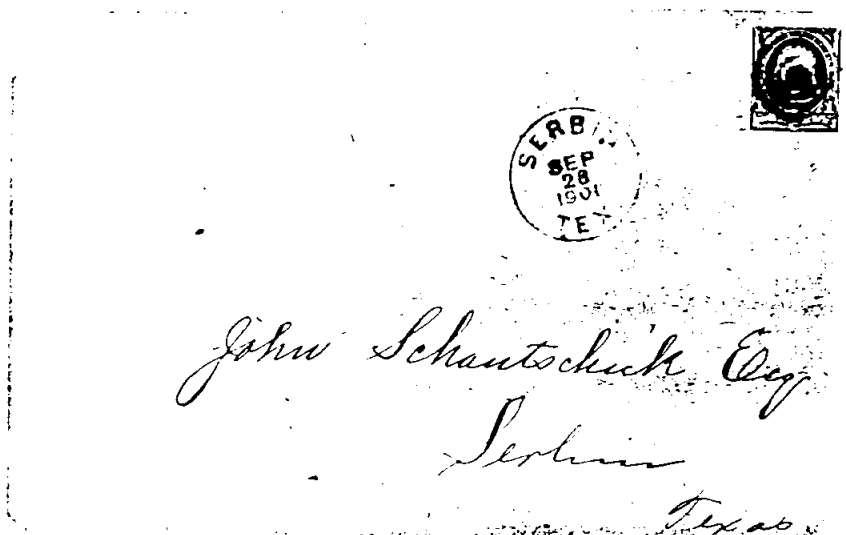 SERBIN
SEP
28
1901
TEX
John Schautschick Esq.
Serbin
Texas